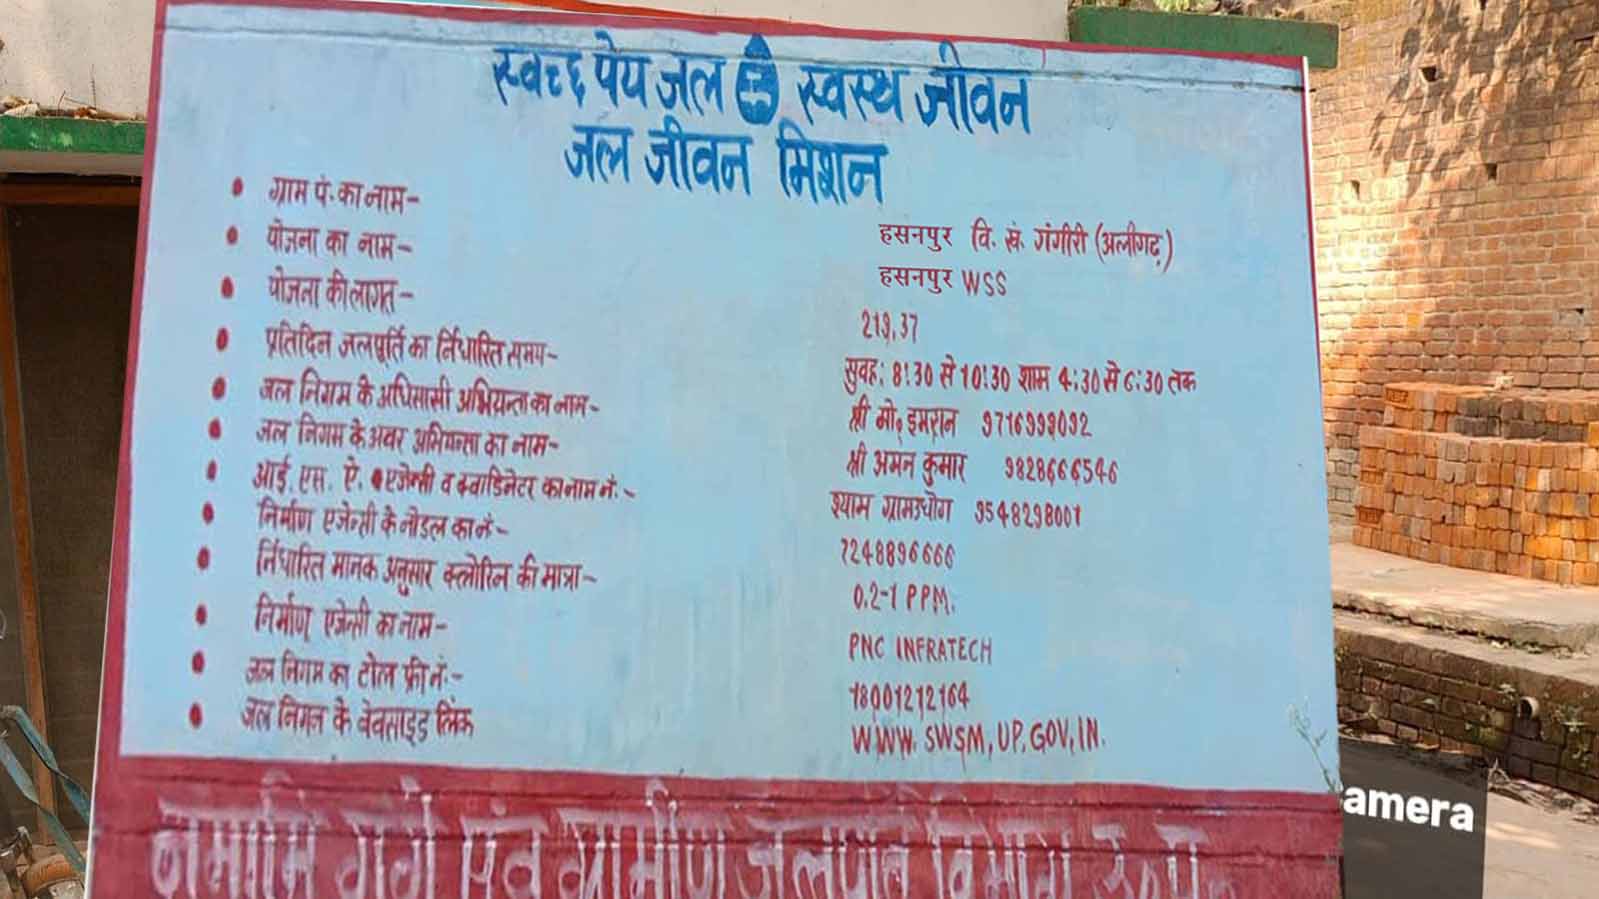 स्वच्छ पेय जल स्वस्थ जीवन
जल जीवन मिशन
• ग्राम पं. का नाम-
हसनपुर वि. खं. गंगीरी (अलीगढ़)
• योजना का नाम-
हसनपुर WSS
• योजना की लागत-
213.37
• प्रतिदिन जलपूर्ति का निर्धारित समय-
सुवह: 8:30 से 10:30 शाम 4:30 से 6:30 तक
• जल निगम के अधिसासी अभियन्ता का नाम-
श्री मो. इमरान 9716993092
• जल निगम के अवर अभियन्ता का नाम-
श्री अमन कुमार 9828666546
• आई. एस. ऐ. एजेन्सी व क्वाडिनेटर का नाम नं:-
श्याम ग्रामउधोग 9548298001
• निर्माण एजेन्सी के नोडल का नं-
7248896666
• निर्धारित मानक अनुसार क्लोरिन की मात्रा-
0.2-1 PPM.
• निर्माण एजेन्सी का नाम-
PNC INFRATECH
• जल निगम का टोल फ्री नं:-
18001212164
• जल निगन के वेवसाइड लिंक
WWW. SWSM, UP, GOV, IN.
नमामि गंगे एंव ग्रामीण जलापूर्ति विभाग उ०प्र०
amera